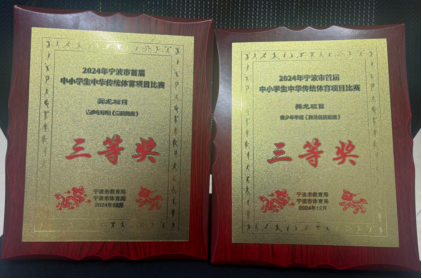 2024年宁波市首届
中小学生中华传统体育项目比赛
舞龙项目
三等奖
宁波市教育局
宁波市体育局
2024年12月
2024年宁波市首届
中小学生中华传统体育项目比赛
舞龙项目
三等奖
宁波市教育局
宁波市体育局
2024年12月